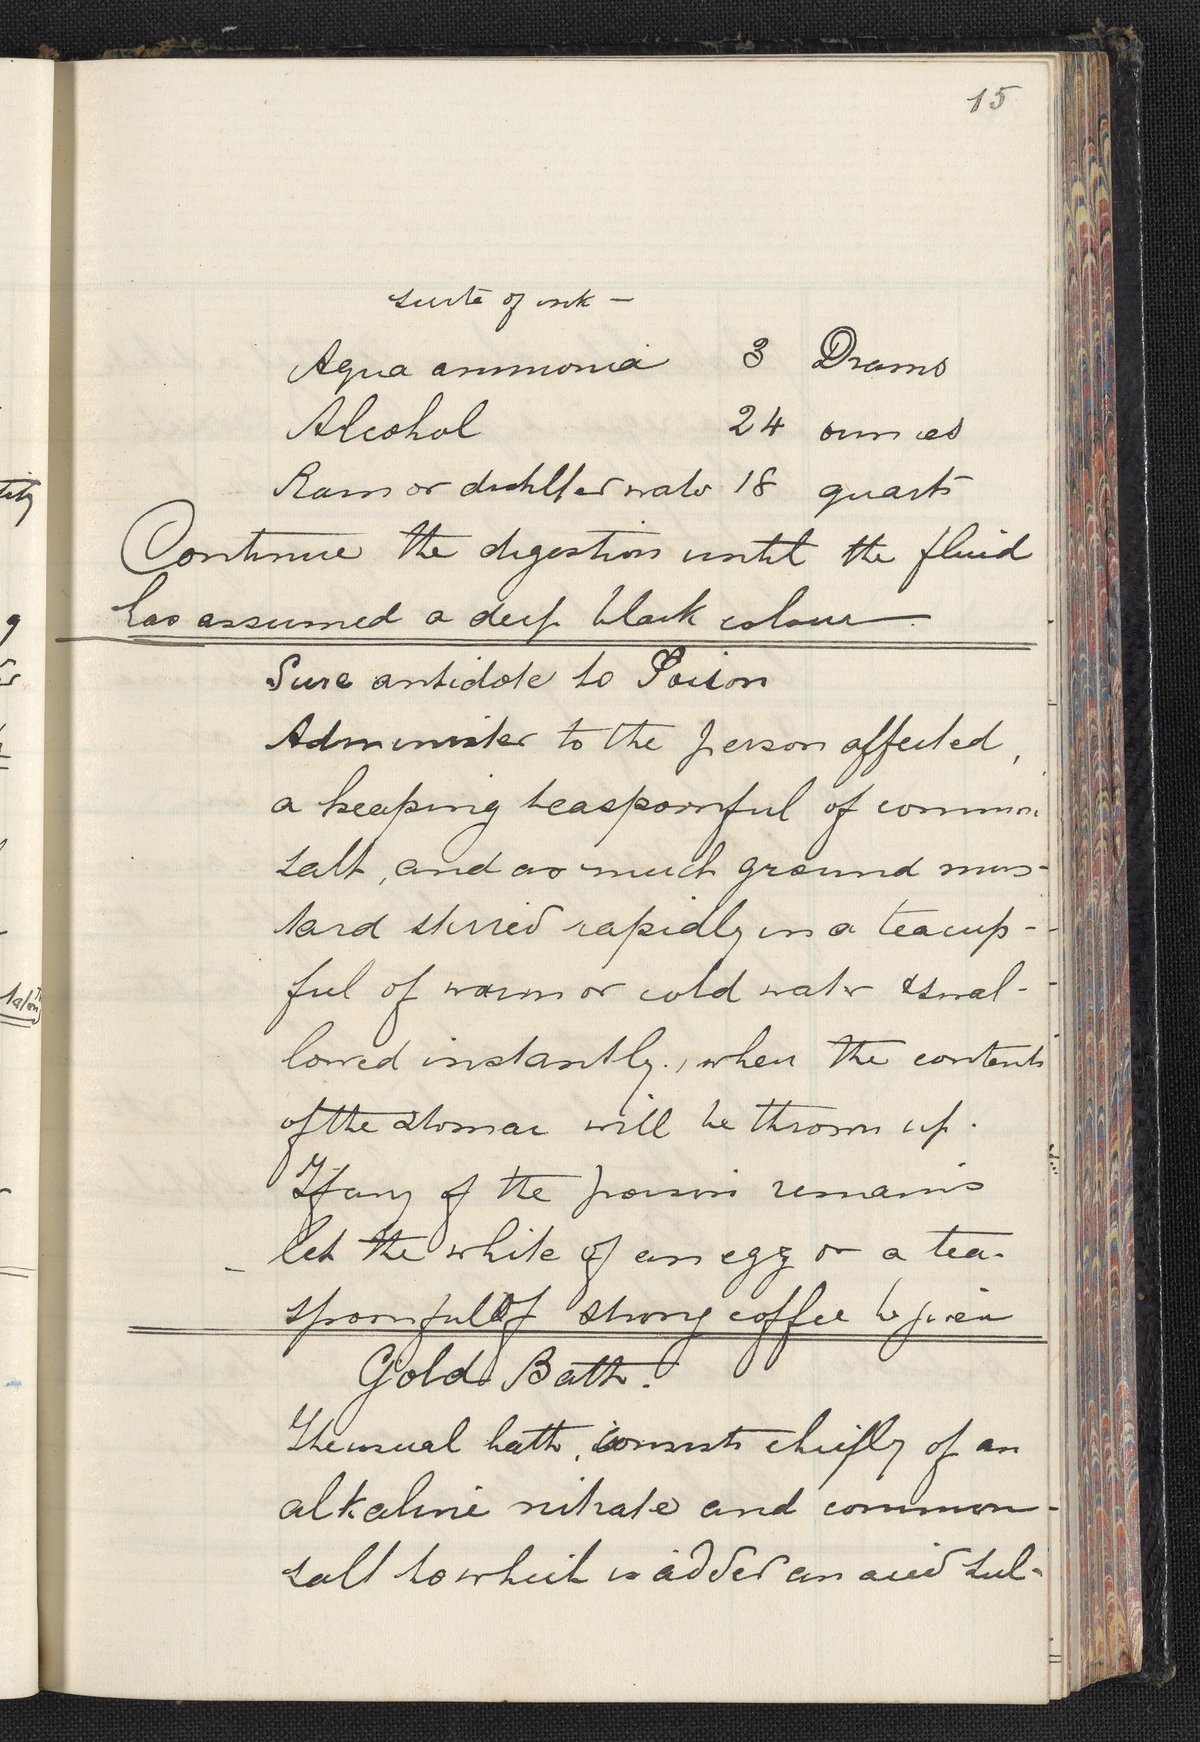 15
suite of ink —
Aqua ammonia 3 Drams
Alcohol 24 ounces
Rain or distilled water 18 quarts
Continue the digestion until the fluid
has assumed a deep black colour.
Sure antidote to Poison
Administer to the person affected,
a heaping teaspoonful of common
salt, and as much ground mus-
tard stirred rapidly in a teacup-
ful of warm or cold water & swal-
lowed instantly., when the contents
of the stomac will be thrown up.
If any of the poison remains
let the white of an egg or a tea-
spoonfull of strong coffee be given
Gold Bath.
The usual bath, consists chiefly of an
alkaline nitrate and common-
salt to which is added an acid sul-